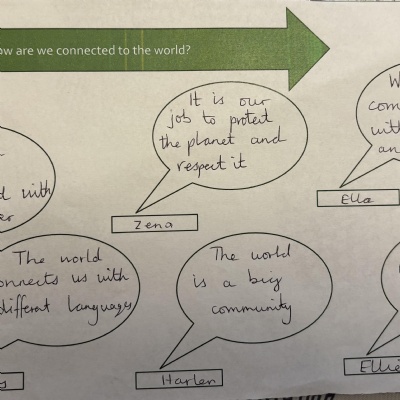 ow are we connected to the world?
It is our
job to protect
the planet and
respect it
Zena
com
with
an
Ella
d with
er
The world
onnects us with
different languages
s
The world
is a big
community
Harlen
Ellie